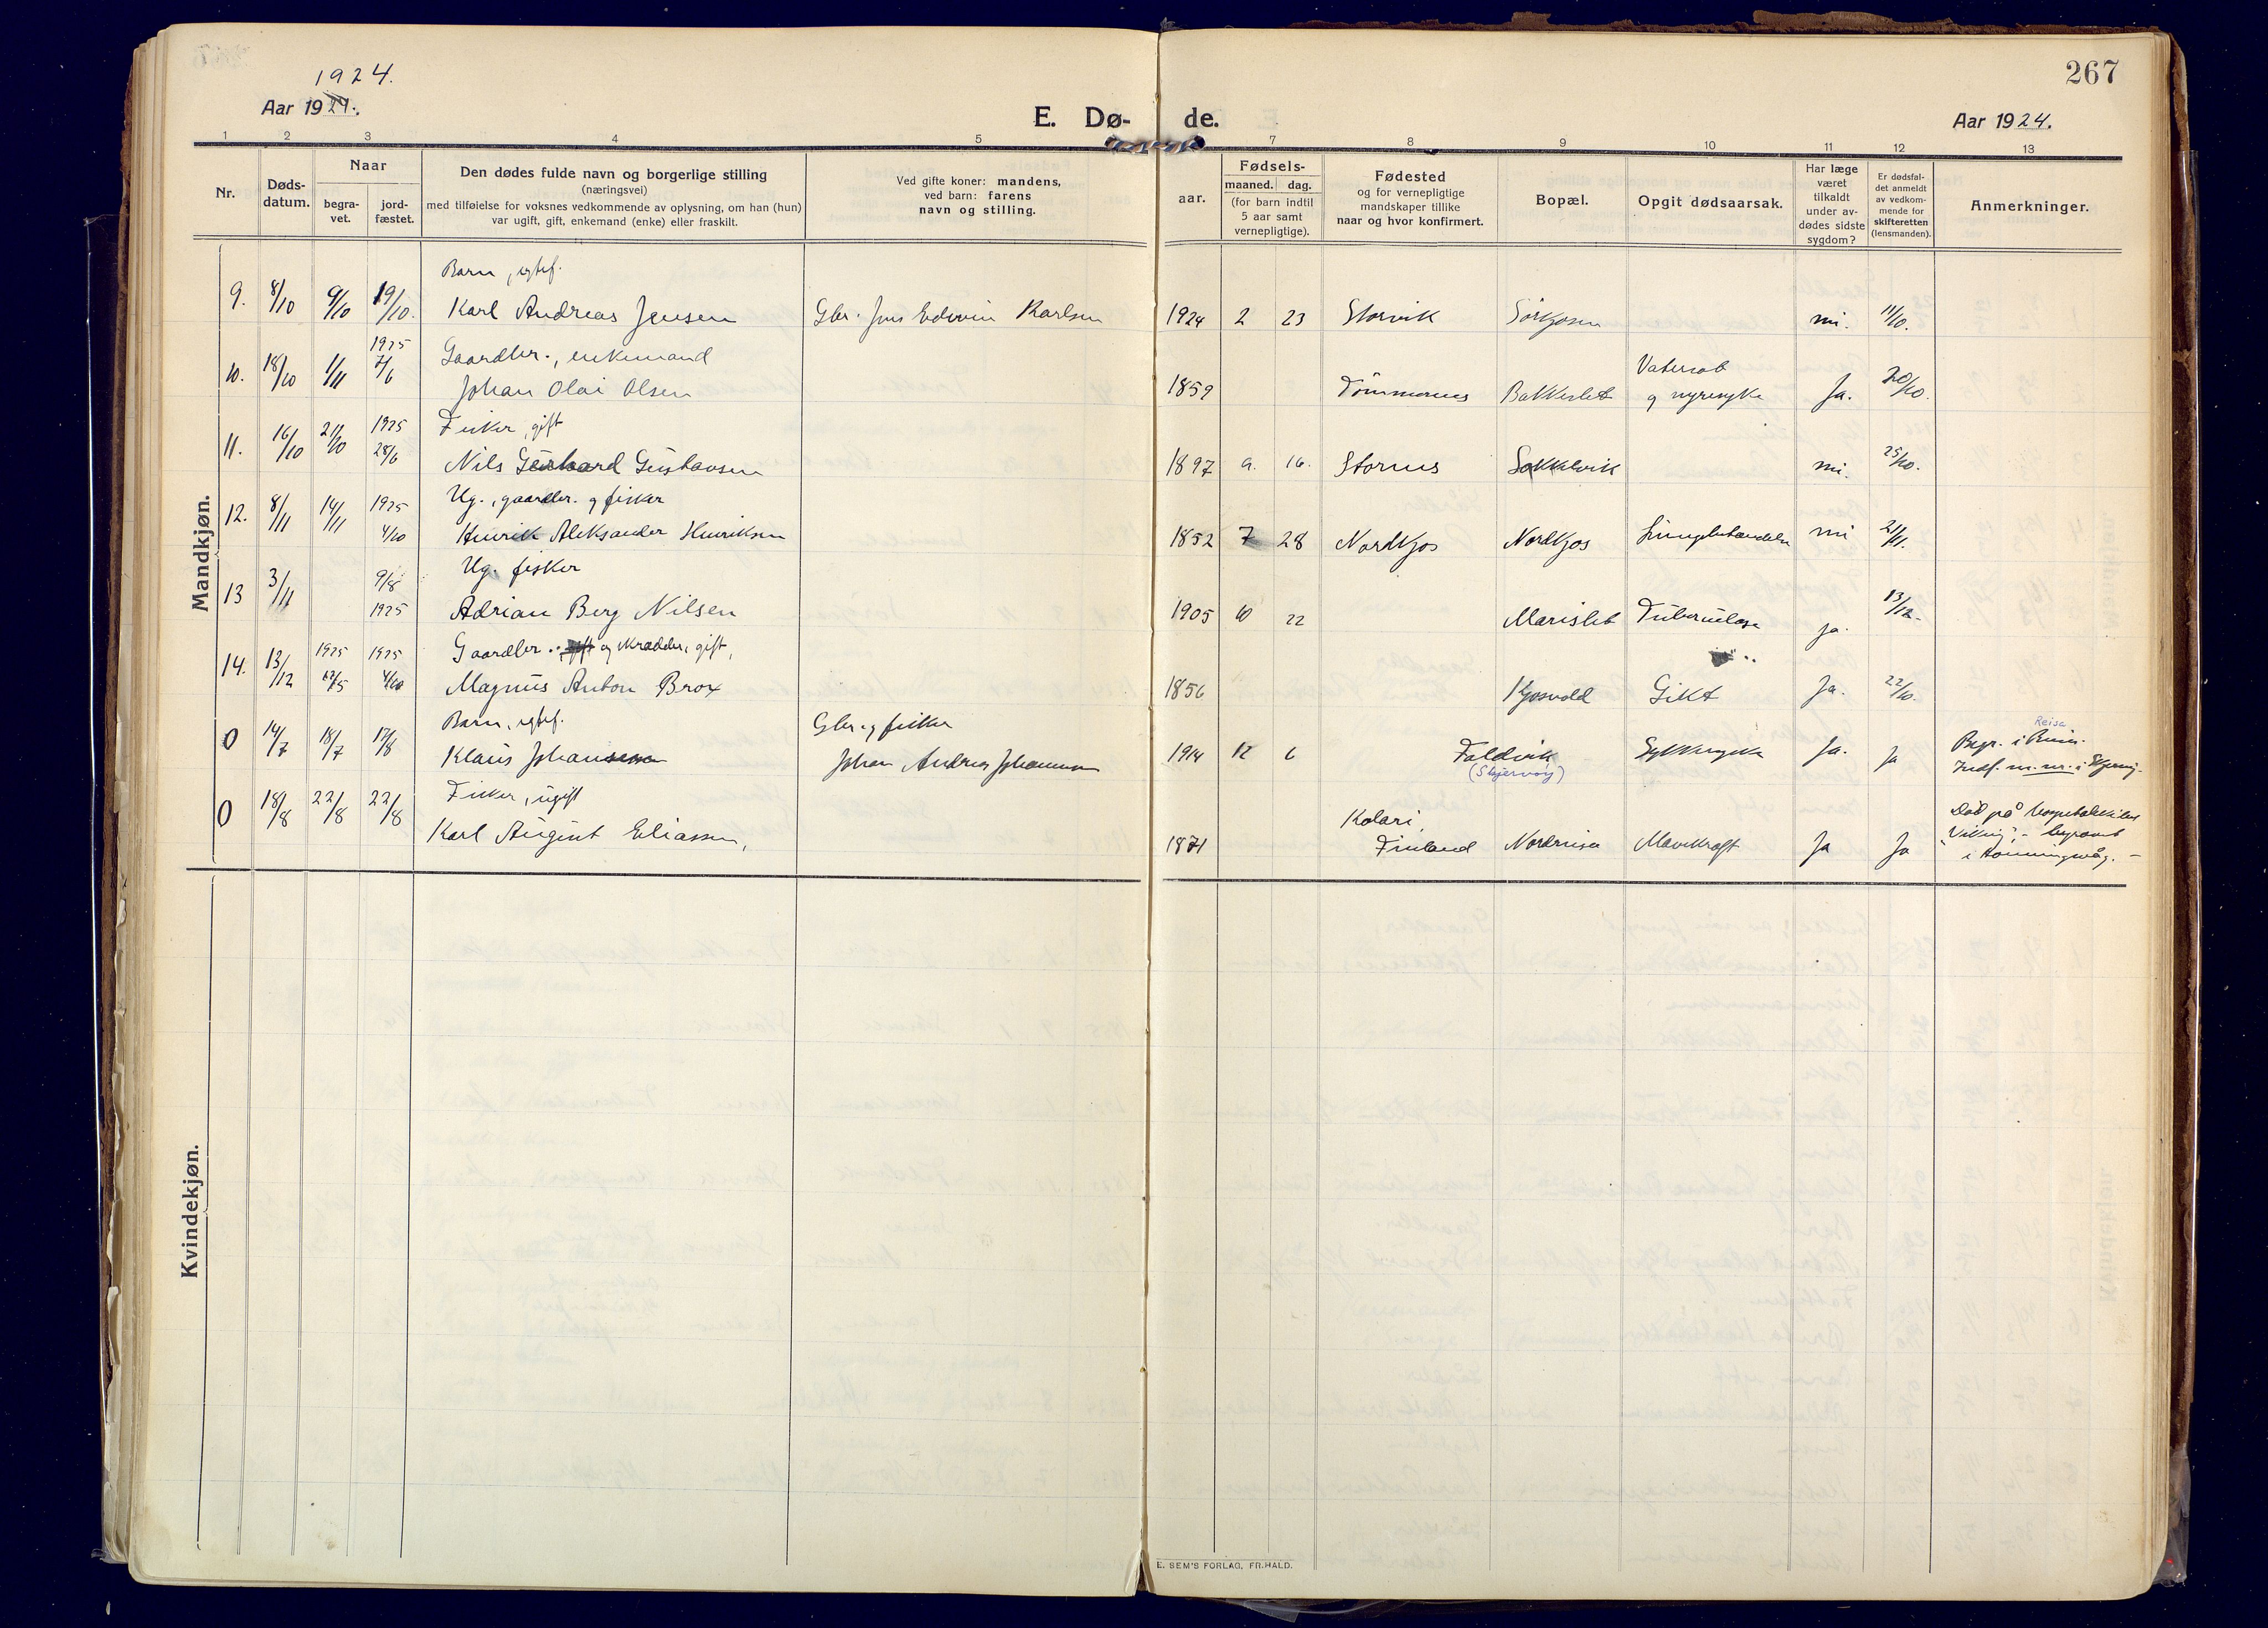 1924.
Aar 1924.
E. Dø-
de.
Aar 1924.
267
1 2 3 4 5 7 8 9 10 11 12 13
Nr.
Døds-
datum.
Naar
begra-
vet.
jord-
fæstet.
Den dødes fulde navn og borgerlige stilling
(næringsvei)
med tilføielse for voksnes vedkommende av oplysning, om han (hun)
var ugift, gift, enkemand (enke) eller fraskilt.
Ved gifte koner: mandens,
ved barn: farens
navn og stilling.
aar.
Fødsels-
maaned. dag.
(for barn indtil
5 aar samt
vernepligtige).
Fødested
og for vernepligtige
mandskaper tillike
naar og hvor konfirmert.
Bopæl.
Opgit dødsaarsak.
Har læge
været
tilkaldt
under av-
dødes sidste
sygdom?
Er dødsfal-
det anmeldt
av vedkom-
mende for
skifteretten
(lensmanden).
Anmerkninger.
Mandkjøn.
Barn, egtef.
9. 8/10 9/10 19/10. Karl Andreas Jensen Gbr. Jens Edvin Karlsen 1924 2 23 Storvik Sörkjosen nei. 11/10.
1925 Gaardbr., enkemand
10. 18/10 1/11 7/6 Johan Olai Olsen 1859 Bakkeslet Vatersot
og nyresyke Ja. 20/10.
1925 Fisker, gift
11. 16/10 21/10 28/6 Nils Gerhard Gustavsen 1897 9. 16. Stornes nei. 25/10.
1925 Ug., gaardbr. og fisker
12. 8/11 14/11 4/10 Henrik Aleksander Henriksen 1852 7 28 Nordkjos Nordkjos Lungebetændelse nei 21/11.
9/8 Ug. fisker
13 3/11 1925 Adrian Berg Nilsen 1905 10 22 Marislet Tuberculose ja. 13/12.
1925 1925 Gaardbr. og skrædder, gift,
14. 13/12 12/5 4/10 Magnus Anton Brox 1856 Kjosvold Gikt Ja. 22/10.
Barn, egtef. Gbr. og fisker
0 14/7 18/7 17/8 Klaus Johansen Johan Andreas Johannesen 1914 12 6 Foldvik
(Skjervøy) Ja. ja
Reisa
Begr. i Reisa.
Indf. m. nr. i Skjervøy.
Fisker, ugift
0 18/8 22/8 22/8 Karl August Eliassen, 1871 Kolari,
Finland Nordreisa Mavekræft Ja Ja
Död på hospitalskibet
"Viking", - begravet
i Honningsvåg. -
Kvindekjøn.
E. SEM'S FORLAG, FR.HALD.